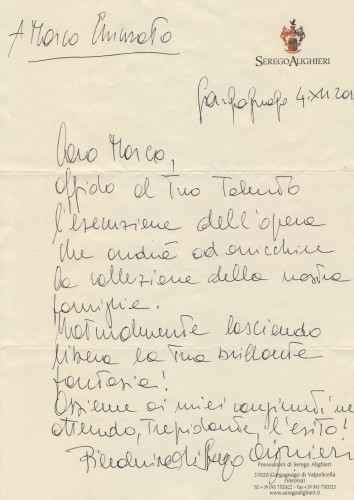 A Marco Chiurato
SEREGO ALIGHIERI
Gargagnago 4.XII.201
Caro Marco,
affido al Tuo Talento
l'esecuzione dell'opera
che andrà ad arricchire
la collezione della nostra
famiglia.
Naturalmente lasciando
libera la tua brillante
fantasia!
Assieme ai miei congiunti ne
attendo, trepidante, l'esito!
Pieralvise di Serego Alighieri
Possessioni di Serego Alighieri
37020 Gargagnago di Valpolicella
(Verona)
Tel. +39 045 7703622 - Fax +39 045 7703523
www.seregoalighieri.it